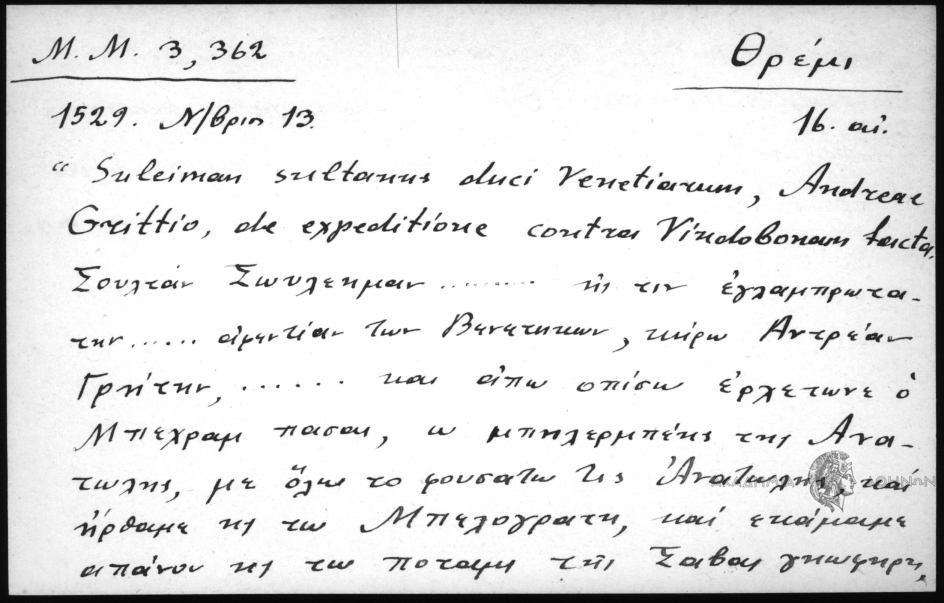 M. M. 3, 362
Θρέμι
1529. Ν/βριο 13.
16. αἰ.
“ Suleiman sultanus duci Venetiarum, Andreae
Grittio, de expeditione contra Vindobonam facta.
Σουλτάν Σωυλεημαν ......... ης τιν ἐγλαμπρωτα-
την ...... αφεντίαν των Βενετηκων, κύρω Αντρέαν
Γρήτην, ...... και απω οπίσω ἐρχετωνε ὁ
Μπεχραμ πασας, ω μπηλερμπέης της Ανα-
τωλης, με ὅλω το φουσατω τις Ἀνατωλης, καί
ήρθαμε ης τω Μπελογρατη, καί εκάμαμε
απάνου ης τω ποταμη τῆς Σαβας γηωφηρη,
ΑΚΑΔΗΜΙΑ ΑΘΗΝΩΝ